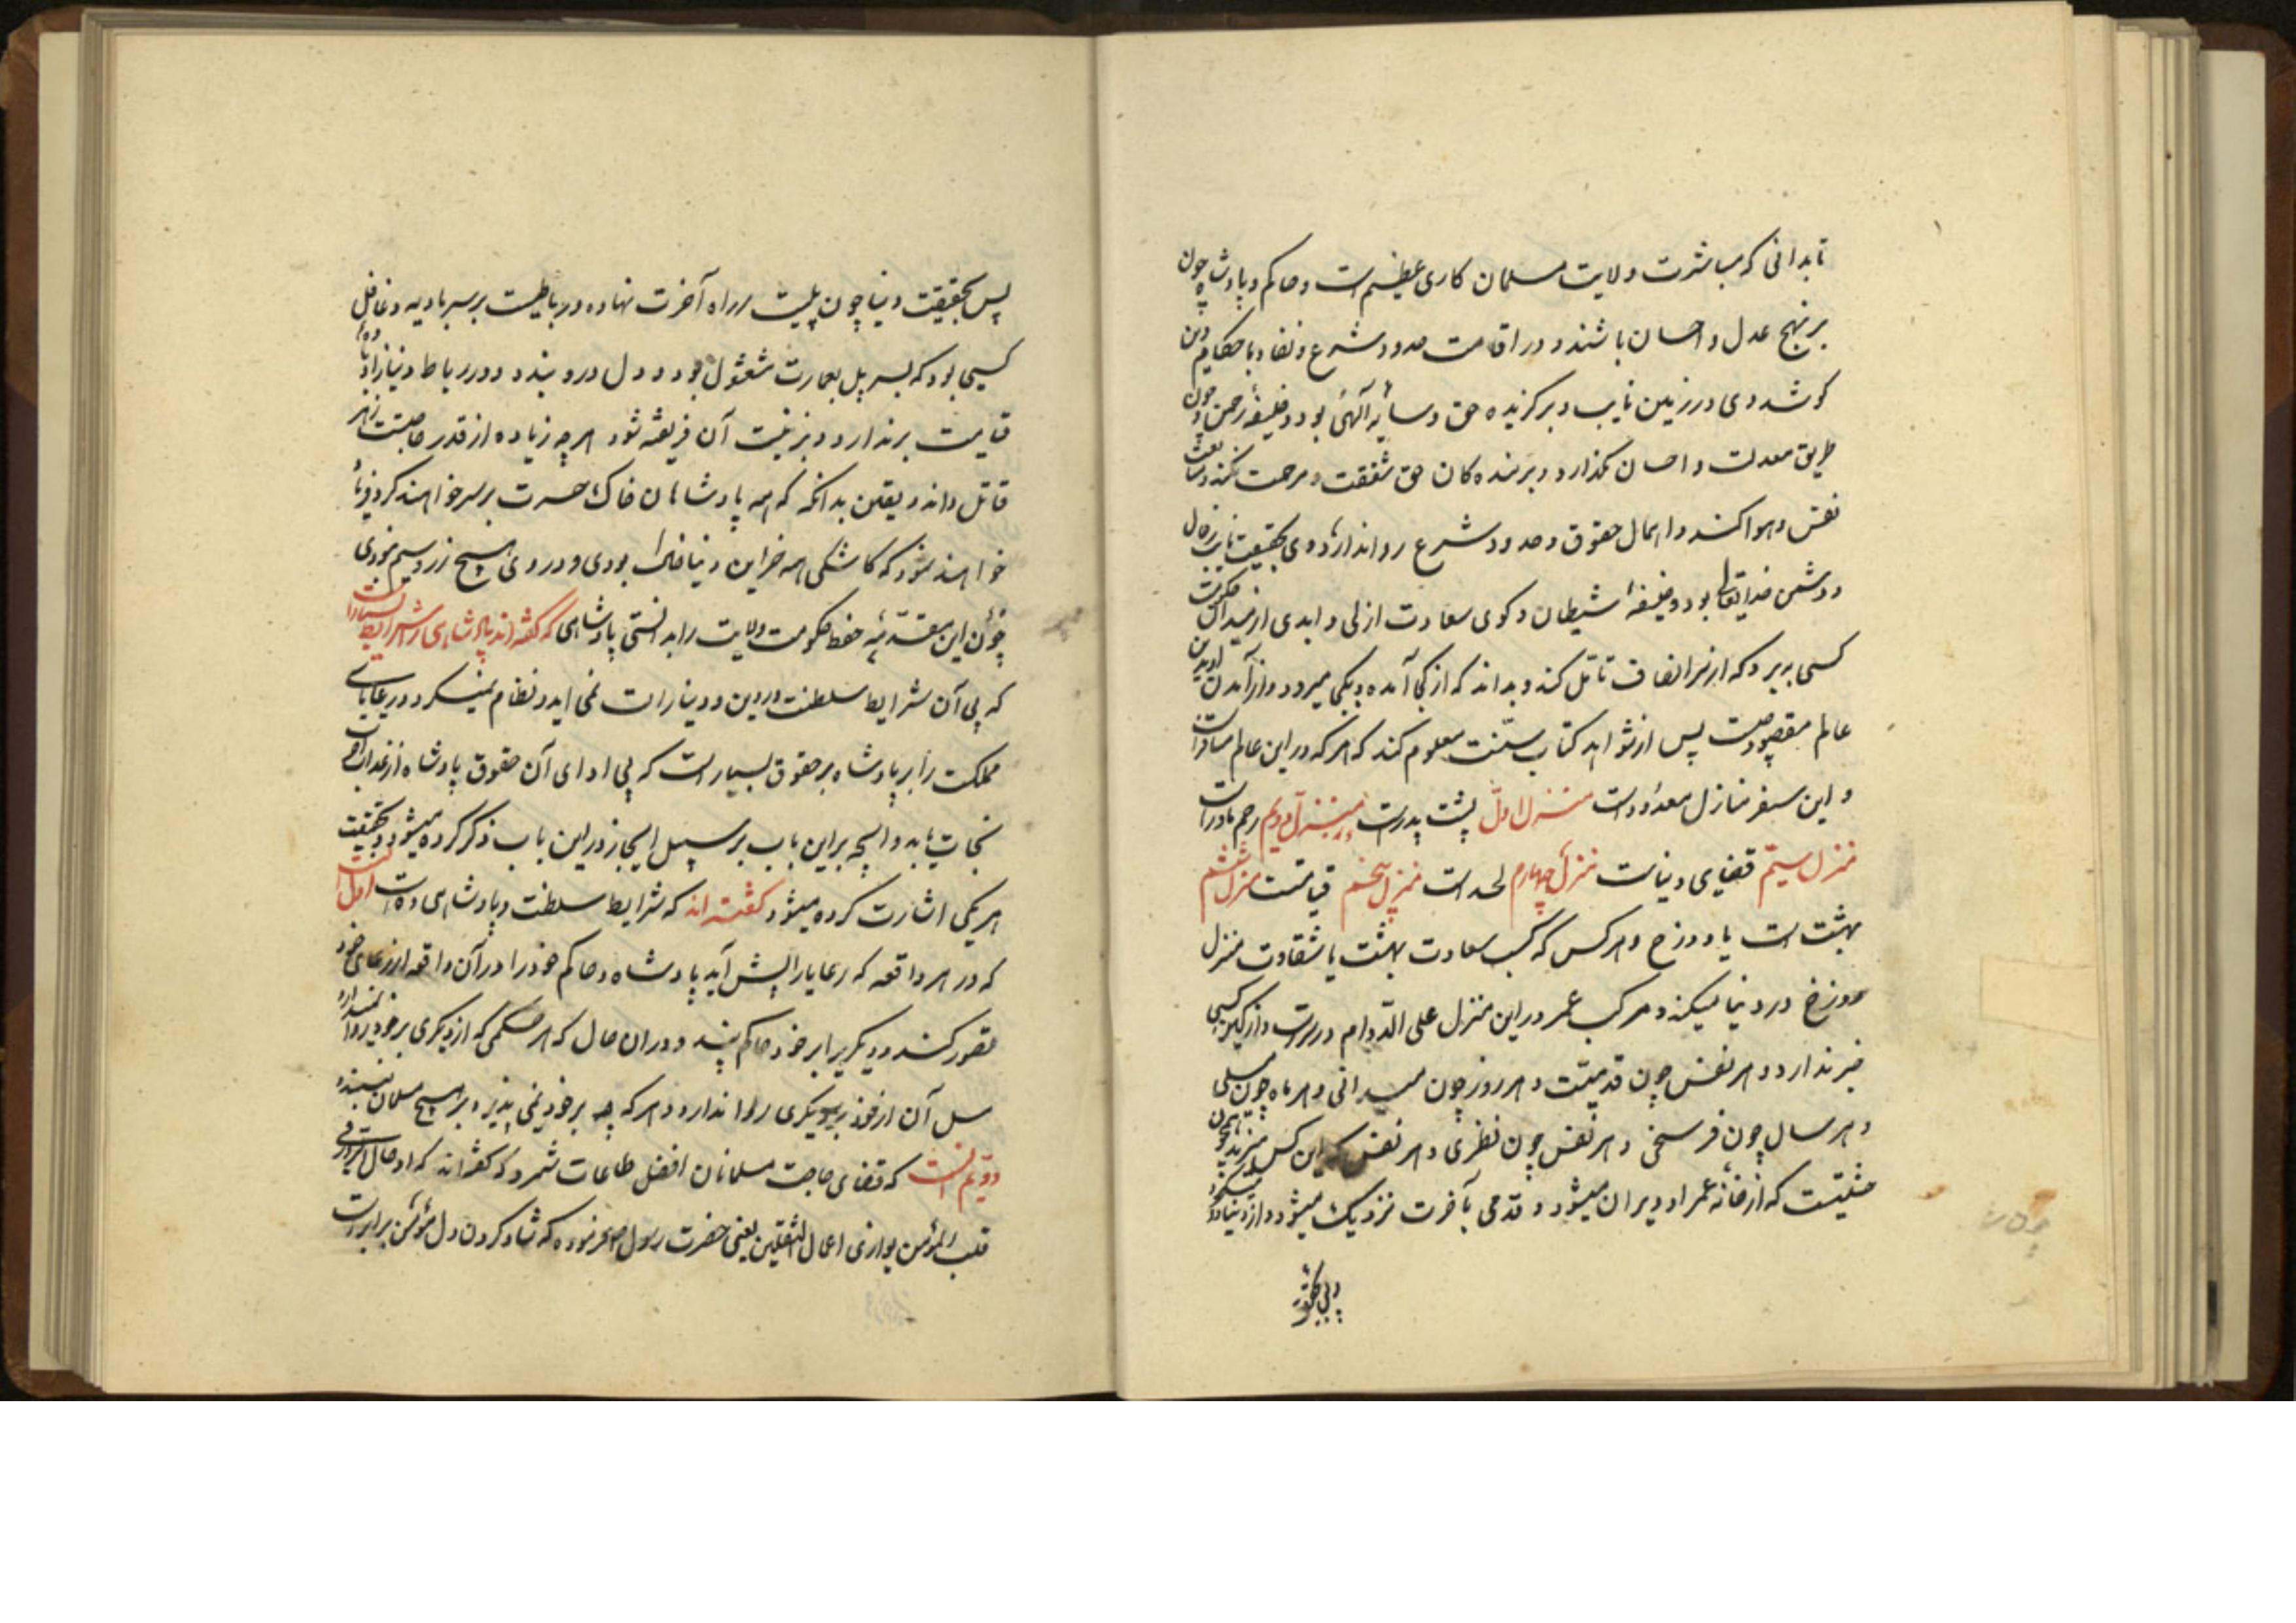 تا بدانی که مباشرت ولایت مسلمان کاری عظیم است و حاکم و پادشاه چون
بر نهج عدل و احسان باشند و در اقامت حدود شرع و نفاد باحکام دین
کوشد وی در زمین نایب و برکزیده حق و سایۀ آلهی بود و خلیفۀ رحمن و چون
طریق معدلت و احسان بگذارد و بر بنده کان حق شفقت و مرحمت نکند و متابعت
نفس و هوا کند و اهمال حقوق و حدود شرع روا ندارد وی بحقیقت نایب
و دشمن خدایتعالی بود و خلیفۀ شیطان و کوی سعادت ازلی و ابدی از میدان حکومت
کسی ببرد که از سر انصاف تأمل کند و بداند که از کجا آمده و بکجا میرود و از آمدن او بدین
عالم مقصود چیست پس از شواهد کتاب سنت معلوم کند که هر که در این عالم مسافرست
و این سفر منازل معدودست منزل اول پشت پدرست منزل دویم رحم مادرست
منزل سیم فضای دنیاست منزل چهارم لحدست منزل پنجم قیامتست منزل ششم
بهشت است یا دوزخ و هر کس که کسب سعادت بهشت یا شقاوت منزل
دوزخ در دنیا میکند و مرکب عمر در این منزل علی الدوام در
خبر ندارد و هر نفس چون قدمیست و هر روز چون میدانی و هر ماه چون میلی
و هر سال چون فرسخی و هر نفس چون نظری و هر نفس که این کس میزند همچون
خشتیست که از خانه عمر او ویران میشود و قدمی بآخرت نزدیک میشود و از دنیا دور میگردد
پس بحقیقت دنیا چون پلیست بر راه آخرت نهاده و رباطیست بر سر بادیه و غافل
کسی بود که بسر پل بعمارت مشغول بود و دل درو بندد و در رباط دنیا زاد بادیه
قیامت برندارد و بزینت آن فریفته شود هر چه زیاده از قدر حاجتست زهر
قاتل داند و یقین بدانکه که همه پادشاهان خاک حسرت بر سر خواهند کرد و
خواهند نمود که کاشکی همه خزاین دنیا خالی بودی و در وی هیچ زر و سیم نبودی
چون این مقدمۀ حفظ حکومت ولایت را بدانستی پادشاهی که کفته اند پادشاهی را شرایط بسیارست
که بی آن شرایط سلطنت در دین و دنیا راست نمی اید و نظام نمیکیرد و رعایای
مملکت را بر پادشاه بر حقوق بسیار است که بی ادای آن حقوق پادشاه از عذاب
نجات یابد و انچه براین باب بر سبیل ایجاز در این باب ذکر کرده میشود و بحقیقت
هر یکی اشارت کرده میشود کفته اند که شرایط سلطنت و پادشاهی ده است اول آنست
که در هر واقعه که رعایا را پیش آید پادشاه و حاکم خود را در آن واقعه از رعایای خود
تصور کند و دیگر برا بر خود حاکم بیند و در ان حال که هر حکمی که از دیکری بر خود روا ندارد
مثل آن از خود بر دیکری روا ندارد و هر که چه بر خود نمی پذیرد بر هیچ مسلمان نپسندد
دویم آنست که قضای حاجت مسلمانان افضل طاعات شمرد که کفته اند که
قلب المؤمن یوازی اعمال الثقلین یعنی حضرت رسول ص فرموده که شاد کردن دل مؤمن برابرست